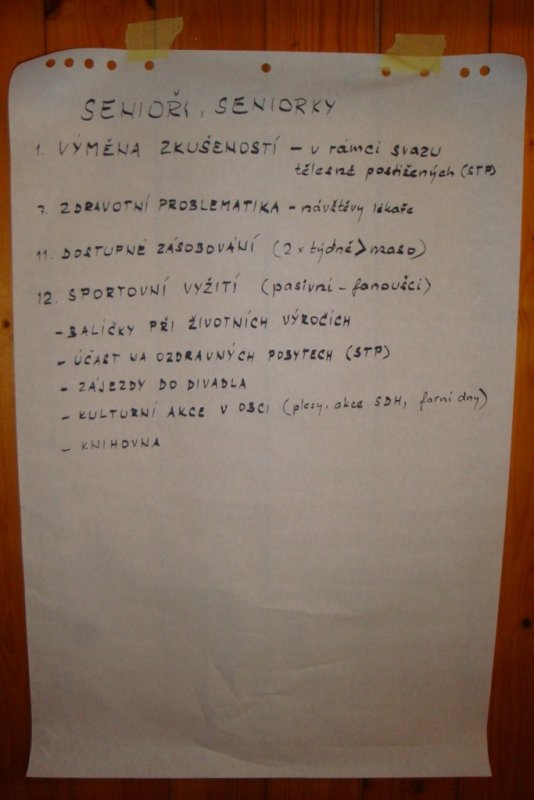 SENIOŘI, SENIORKY
1. VÝMĚNA ZKUŠENOSTÍ – v rámci svazu
tělesně postižených (STP)
7. ZDRAVOTNÍ PROBLEMATIKA – návštěvy lékaře
11. DOSTUPNÉ ZÁSOBOVÁNÍ (2 x týdně > maso)
12. SPORTOVNÍ VYŽITÍ (pasivní – fanoušci)
– BALÍČKY PŘI ŽIVOTNÍCH VÝROČÍCH
– ÚČAST NA OZDRAVNÝCH POBYTECH (STP)
– ZÁJEZDY DO DIVADLA
– KULTURNÍ AKCE V OBCI (plesy, akce SDH, farní dny)
– KNIHOVNA